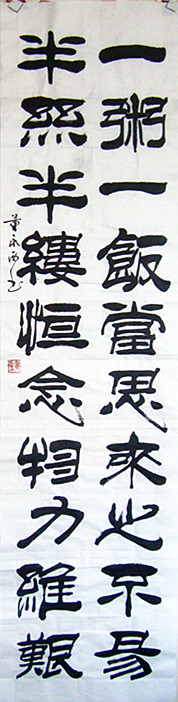 一粥一飯當思來之不易
半絲半縷恒念物力維艱